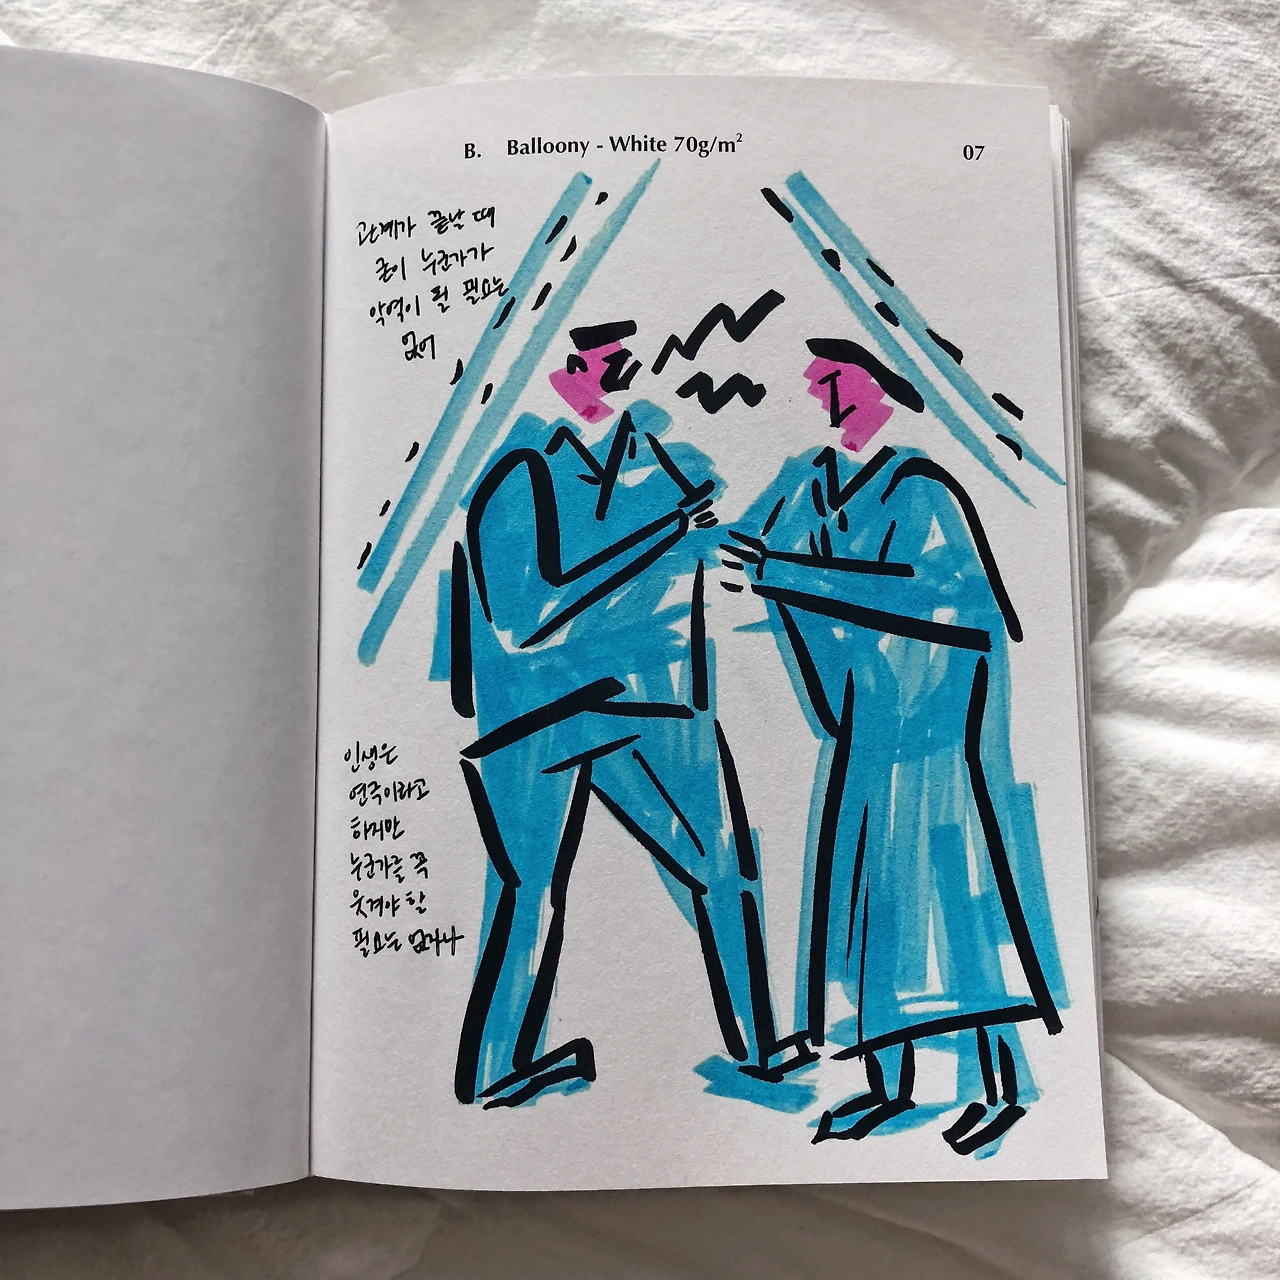 B. Balloony - White 70g/m² 07
관계가 끝날 때
굳이 누군가가
악역이 될 필요는
없어
인생은
연극이라고
하지만
누군가를 꼭
웃겨야 할
필요는 없거나